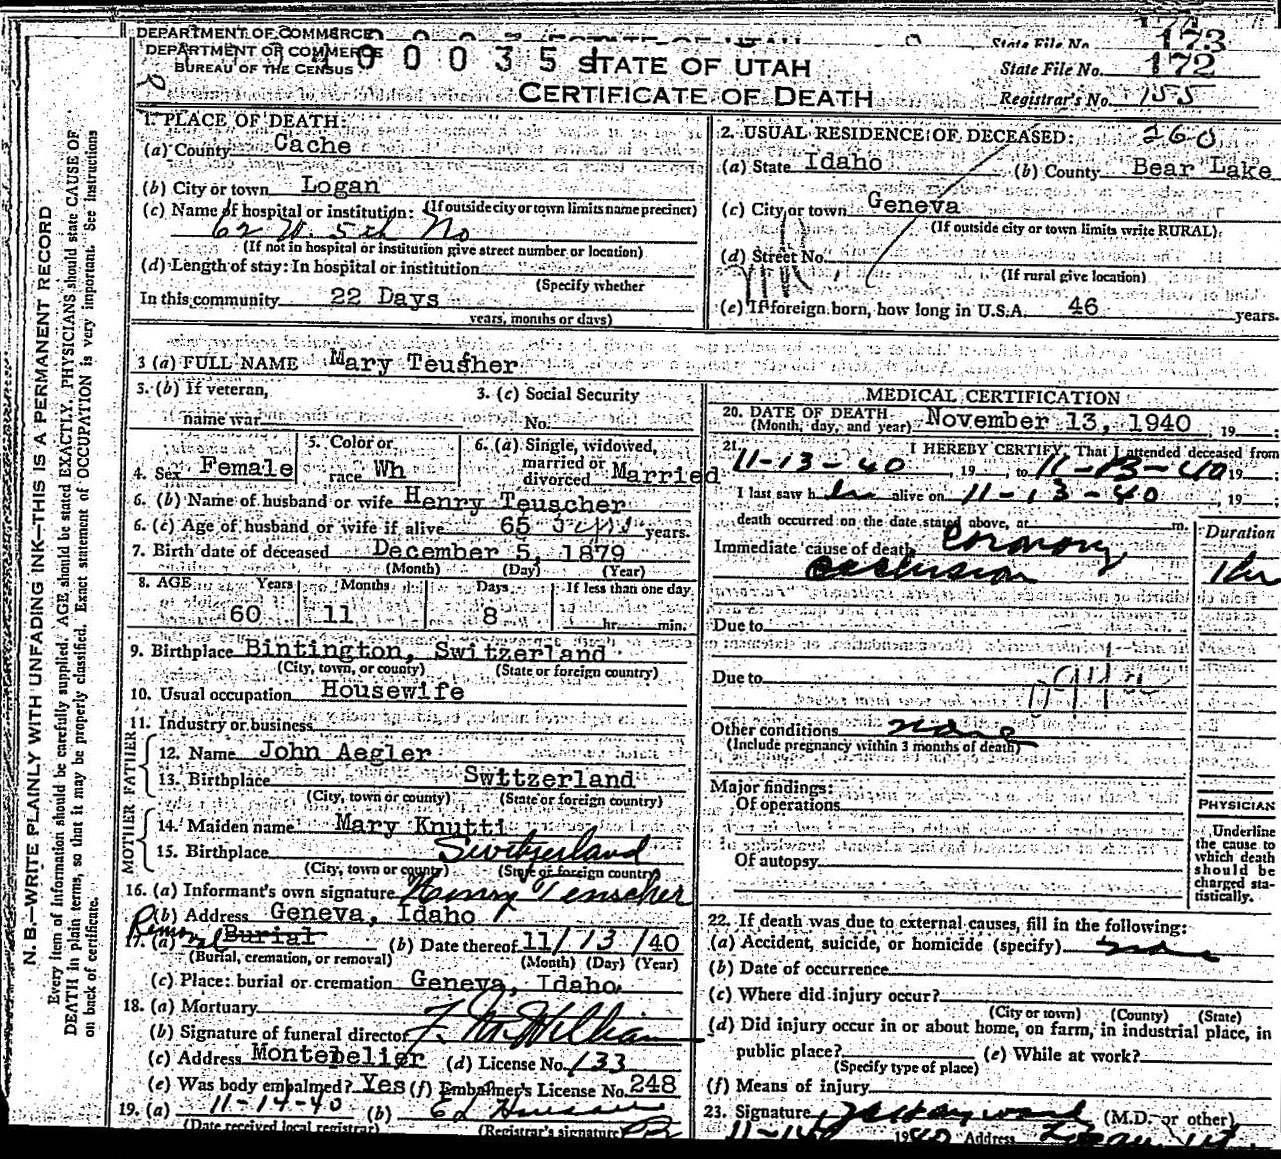 DEPARTMENT OF COMMERCE
DEPARTMENT OF COMMERCE
BUREAU OF THE CENSUS
STATE OF UTAH
CERTIFICATE OF DEATH
State File No. 173
State File No. 172
Registrar's No. 155
1. PLACE OF DEATH:
(a) County Cache
(b) City or town Logan
(If outside city or town limits name precinct)
(c) Name of hospital or institution:
62 W. 5th No
(If not in hospital or institution give street number or location)
(d) Length of stay: In hospital or institution
(Specify whether
In this community 22 Days
years, months or days)
2. USUAL RESIDENCE OF DECEASED: 260
(a) State Idaho (b) County Bear Lake
(c) City or town Geneva
(If outside city or town limits write RURAL)
(d) Street No.
(If rural give location)
(e) If foreign born, how long in U.S.A. 46 years.
3 (a) FULL NAME Mary Teusher
3. (b) If veteran,
name war
3. (c) Social Security
No.
4. Sex Female
5. Color or
race Wh
6. (a) Single, widowed,
married or
divorced Married
6. (b) Name of husband or wife Henry Teuscher
6. (c) Age of husband or wife if alive 65 yrs years.
7. Birth date of deceased December 5, 1879
(Month) (Day) (Year)
8. AGE Years Months Days If less than one day
60 11 8 hr. min.
9. Birthplace Bintington, Switzerland
(City, town, or county) (State or foreign country)
10. Usual occupation Housewife
11. Industry or business
FATHER
12. Name John Aegler
13. Birthplace Switzerland
(City, town or county) (State or foreign country)
MOTHER
14. Maiden name Mary Knutti
15. Birthplace Switzerland
(City, town or county) (State or foreign country
16. (a) Informant's own signature Henry Teuscher
(b) Address Geneva, Idaho
Removal
17. (a) Burial (b) Date thereof 11/13/40
(Burial, cremation, or removal) (Month) (Day) (Year)
(c) Place: burial or cremation Geneva, Idaho
18. (a) Mortuary
(b) Signature of funeral director F. M. Williams
(c) Address Montepelier (d) License No. 133
(e) Was body embalmed? Yes (f) Embalmer's License No. 248
19. (a) 11-14-40 (b)
(Date received local registrar) (Registrar's signature
MEDICAL CERTIFICATION
20. DATE OF DEATH
(Month, day, and year) November 13, 1940, 19
21. I HEREBY CERTIFY, That I attended deceased from
11-13-40, 19 to 11-13-40 19
I last saw her alive on 11-13-40, 19
death occurred on the date stated above, at m.
Duration
Immediate cause of death Coronary
occlusion 1 hr
Due to
Due to 094a
Other conditions none
(Include pregnancy within 3 months of death)
Major findings:
Of operations
Of autopsy
PHYSICIAN
Underline
the cause to
which death
should be
charged sta-
tistically.
22. If death was due to external causes, fill in the following:
(a) Accident, suicide, or homicide (specify) none
(b) Date of occurrence
(c) Where did injury occur?
(City or town) (County) (State)
(d) Did injury occur in or about home, on farm, in industrial place, in
public place? (e) While at work?
(Specify type of place)
(f) Means of injury
23. Signature (M.D. or other)
1940 Address Logan Ut
N. B.—WRITE PLAINLY WITH UNFADING INK—THIS IS A PERMANENT RECORD
Every item of information should be carefully supplied. AGE should be stated EXACTLY. PHYSICIANS should state CAUSE OF
DEATH in plain terms, so that it may be properly classified. Exact statement of OCCUPATION is very important. See instructions
on back of certificate.